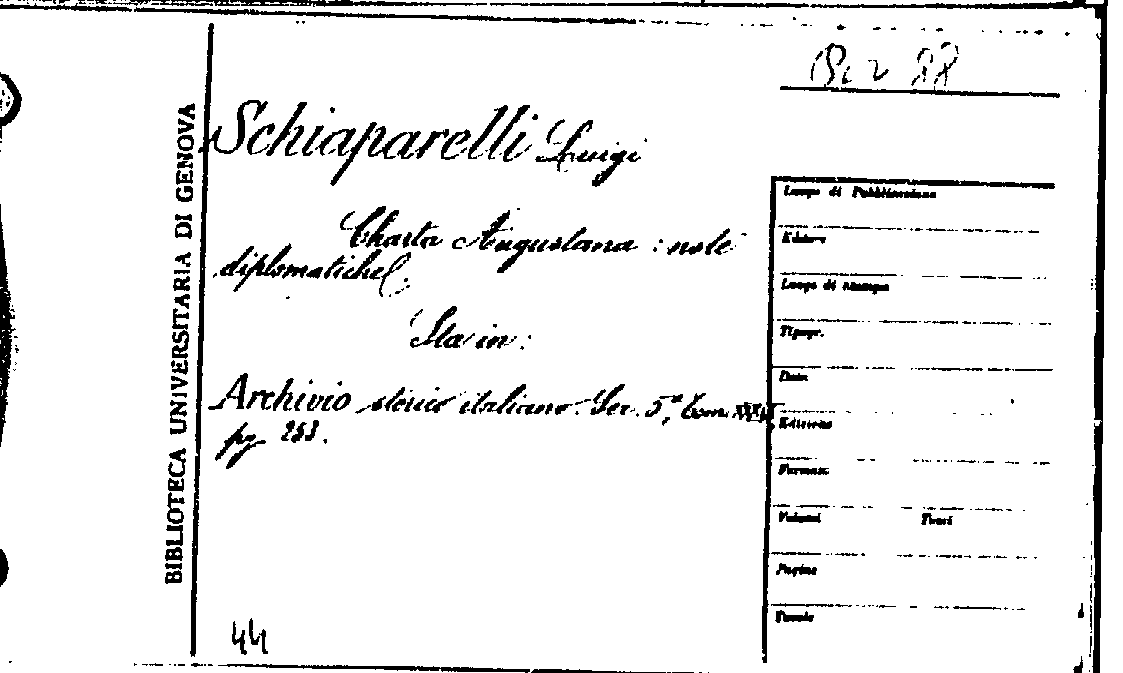 BIBLIOTECA UNIVERSITARIA DI GENOVA
Schiaparelli Luigi
Charta Augustana : note
diplomatiche
Sta in :
Archivio storico italiano. Ser. 5ª, Tom.
pg. 253.
44
Luogo di Pubblicazione
Editore
Luogo di Stampa
Tipogr.
Data
Edizione
Formato
Volumi Tomi
Pagine
Tavole